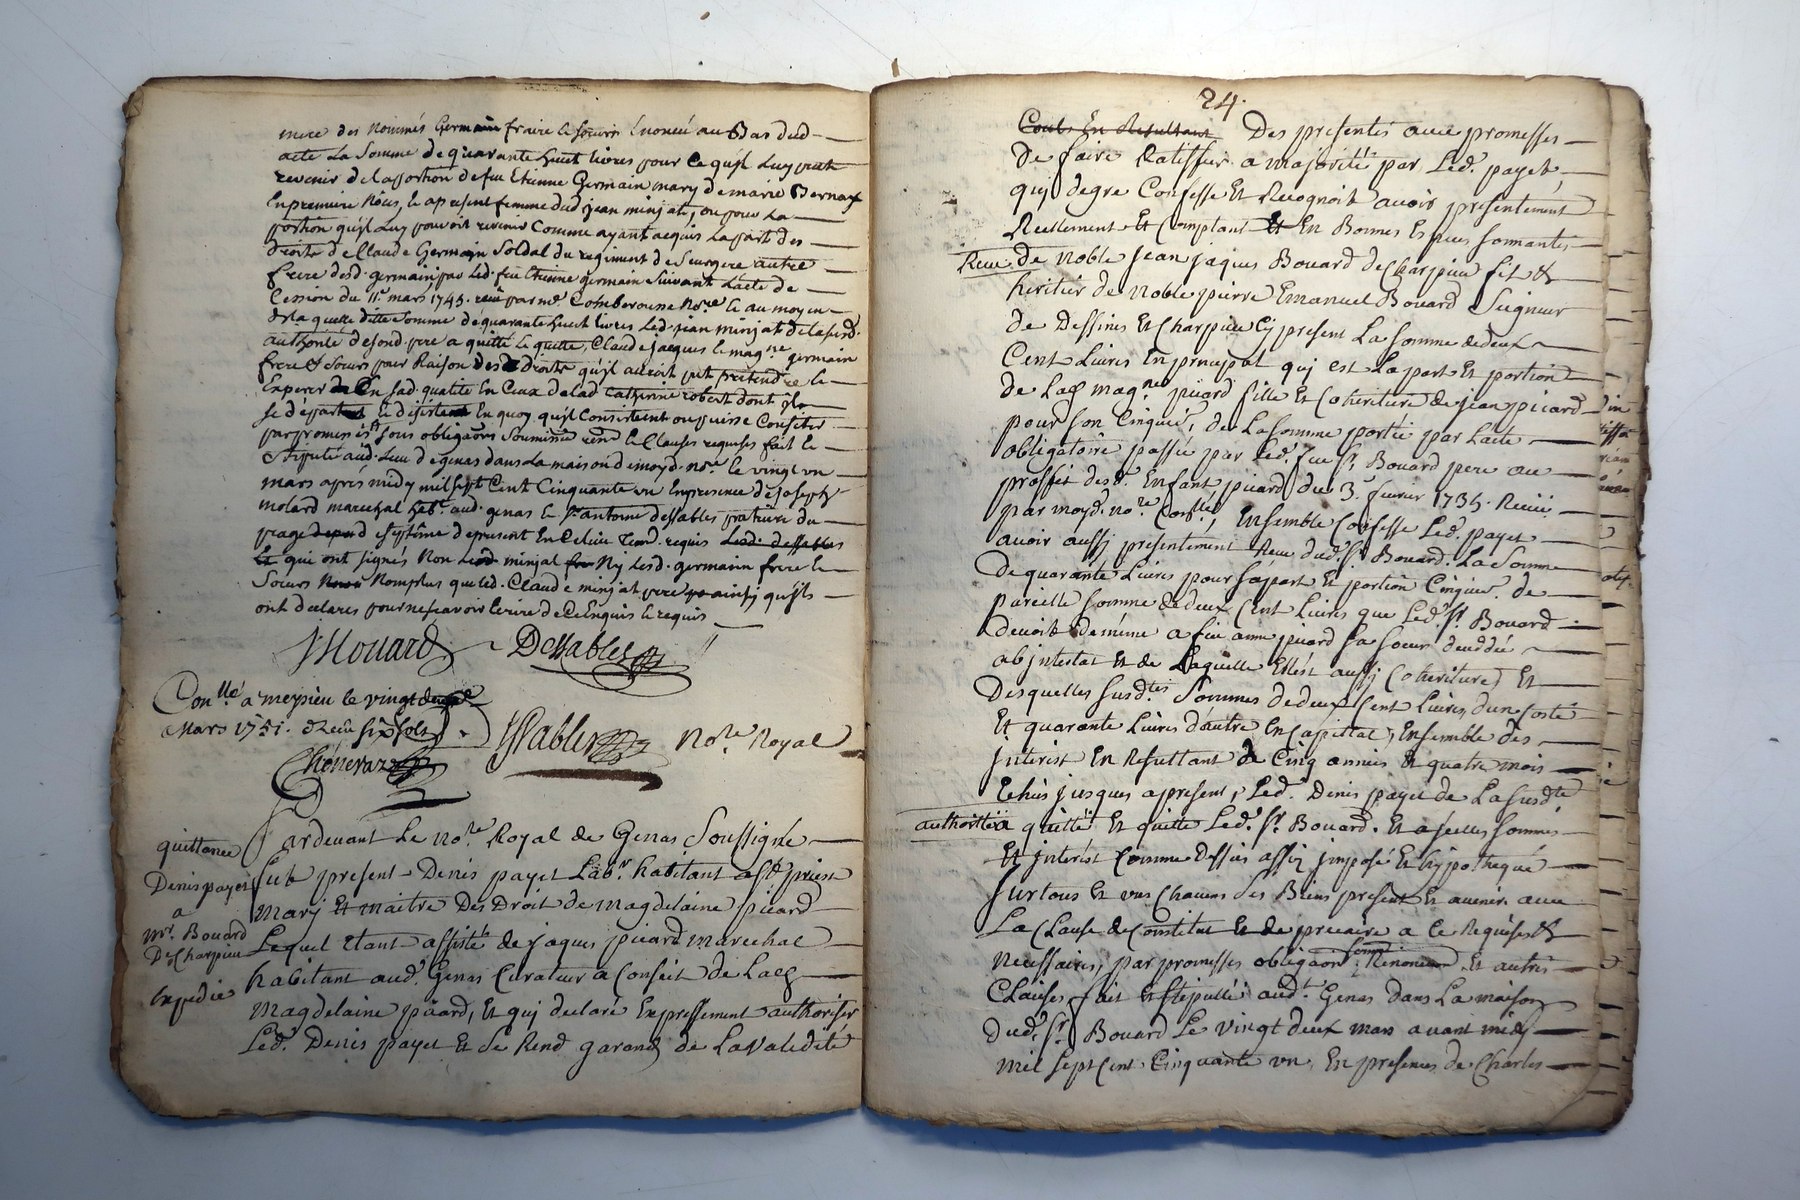 mere des Nommés Germain fraire le soeurs Enoncée au Bas dud
acte La Somme de quarante huit livres pour ce qu'il Luy peut
revenir de la portion de feu Etienne Germain mary de marie Bernax
En premiere Nôces, le apresent femme dud jean minjat, ou pour La
portion qu'il Luy pouvoit revenir Comme ayant acquis La part des
droits de Claude Germain Soldat du regiment de autre
frere desd. germain par Led. feu Etienne germain Suivant L'acte de
Cession du 11e mars 1745. reçu par me Comberousse Nore le au moyen
de la quelle ditte Somme de quarante huit livres Led. jean minjat de la susd.
authorité de sond. pere a quitté le quitte, Claude jacques le magne germain
frere & Soeurs pour Raison des Droits qu'il auroit put pretendre le
Esperer En sad. qualité En Ceux de lad Catherine robert dont ils
se départ le déjiste En quoy qu'il Consistent ou puisse Consister
par promesses sous obligaons Soumission renon le Clauses requises fait le
Stipulé aud. Lieu de genas dans La maison de moyd. nore le vingt un
mars après midy mil sept Cent Cinquante un En presence de joseph
molard marechal habt. aud. genas le Sr antoine dessables praticien du
present En Celieu temd. requis Led. dessables
Et qui ont signés Non Led minjat Ny Lesd. germain frere le
Soeurs Nomplus que Led. Claude minjat pere ainsy qu'ils
ont declarés pour ne scavoir Ecrire de Ce Enquis le requis
JMouard Dessables
Conllé a meysieu le vingt deux
Mars 1751. Reçu six sols
Chôneraz
Dessables Nore. Royal
quittance
Denis payet
a
Mr. Bouard
De Charpieu
Expedié
Pardevant Le Nore Royal de Genas Soussigné
fut present Denis payet Labr. habitant a St priest
Mary Et maitre Des Droit de magdelaine picard
Lequel Etant assisté de jaques picard marechal
habitant aud. Genas Curateur a Conseil de Lad
Magdelaine picard, Et qui declaré Expressement authoriser
Led. Denis payet Et Se Rend garand de La validité
24.
Des presentes avec promesses
De faire Ratiffier a majorité par Led. payet
qui degre Confesse Et Recognoit avoir presentement
Reellement Et Comptant Et En Bonnes Espèces sonnantes
Receu de Noble jean jaques Bouard de Charpieu fils &
heritier de Noble pierre Emanuel Bouard Seigneur
De Dessines Et Charpieu Cy present La somme de deux
Cent Livres En principal qui est La part Et portion
de Lad magne picard fille Et Coheritiere de jean picard
pour son Cinquie, de La somme portée par L'acte
obligatoire passée par Led. feu Sr. Bouard pere au
proffit desd. Enfant picard du 3e. fevrier 1735. Receu
par moyd. nore. Conllé, Ensemble Confesse Led. payet
avoir aussi presentement Receu dud. Sr. Bouard. La Somme
De quarante Livres pour sa part Et portion Cinquie. de
pareille somme de deux Cent Livres que Led. Sr. Bouard
devoit de même a feu anne picard sa soeur deceddée
abjntestat Et de Laquelle Ellest aussy Coheritiere Et
Desquelles susdtes Sommes de deux Cent Livres d'un Costé
Et quarante Livres d'autre En Capittal, Ensemble des
jnterest En Resultant de Cinq années Et quatre mois
Echus jusques apresent, Led. Denis payet de La susdte
authorité a quitté Et quitte Led. Sr. Bouard. Et a jcelles sommes
Et jnterêst Comme Dessus assis jmposé Et hypothequé
sur tous Et uns Chacuns Ses Biens present Et avenir avec
La Clause de Constitut Et de precaire a Ce Requises &
necessaires, par promesses obligaon Renoncion Et autres
Clauses fait Et stipullé audt. Genas dans La maison
Dud. Sr. Bouard Le vingt deux mars avant midy
mil sept Cent Cinquante un, En presences de Charles